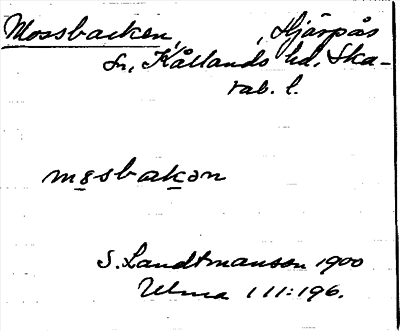 Mossbacken, , Hjärpås
sn, Kållands hd, Ska-
rab. l.
mosbakən
S. Landtmanson 1900
Ulma 111:196.